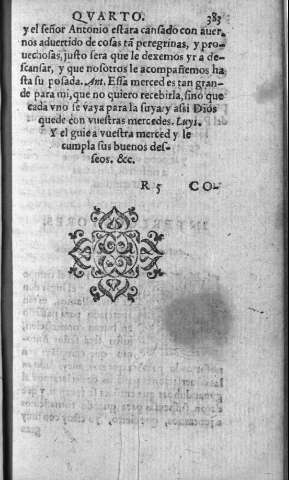 QVARTO. 383
y el señor Antonio estara cansado con auer-
nos aduertido de cosas tã peregrinas, y pro-
uechosas, justo sera que le dexemos yr a de-
scansar, y que nosotros le acompañemos ha
sta su posada. Ant. Essa merced es tan gran-
de para mi, que no quiero recebirla, sino que
cada vno se vaya para la suya y assi Dios
quede con vuestras mercedes. Luys.
Y el guie a vuestra merced y le
cumpla sus buenos des-
seos. &c.
R 5 CO-